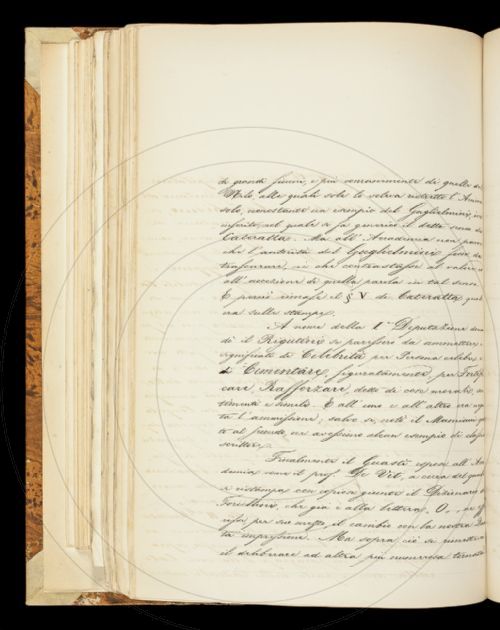 di grandi fiumi, e più comunemente di quelle de
Nilo, alle quali sole lo voleva ristretto l'Amm
solo, nonostante un esempio del Guglielmini,
infinito, nel quale si fa generico il detto senso di
Cateratta. Ma all' Accademia non parve
che l'autorità del Guglielmini fosse da
trascurare, in che contrastasse al valore o
all' accezione di quella parola in tal senso.
E perciò rimase il § V di Cateratta qual
era nelle stampe.
A nome della 1ª Deputazione
dò il Rigutini se paressero da ammettere
significato di Celebrità per Persona celebre, e
di Cimentare, figuratamente, per Fortifi
care, Rafforzare, detto di cose morali,
timenti e simili. E all' uno e all' altro
ta l'ammissione; salvo se, notò il Mamiani
to al secondo, vi avessimo alcun esempio di classi
scrittore.
Finalmente il Guasti espose all' Acca
demia come il prof. De Vit, a cura del quale
si ristampa con copiose giunte il Dizionario
Forcellini, che già è alla lettera O,
risse per suo mezzo il cambio con la nostra
ta impressione. Ma sopra ciò si
il deliberare ad altra più numerosa tornata